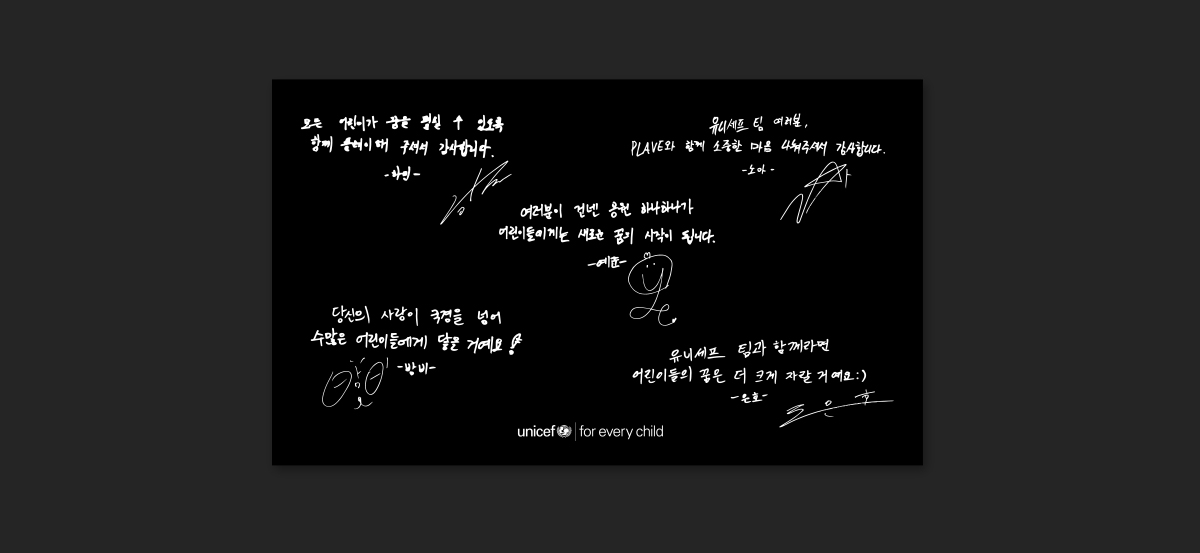 모든 어린이가 꿈을 펼칠 수 있도록
함께 플레이해 주셔서 감사합니다.
-하민-
유니세프 팀 여러분,
PLAVE와 함께 소중한 마음 나눠주셔서 감사합니다.
-노아-
여러분이 건넨 응원 하나하나가
어린이들에게는 새로운 꿈의 시작이 됩니다.
-예준-
당신의 사랑이 국경을 넘어
수많은 어린이들에게 닿을 거예요!
-밤비-
유니세프 팀과 함께라면
어린이들의 꿈은 더 크게 자랄 거예요:)
-은호-
도은호
unicef for every child